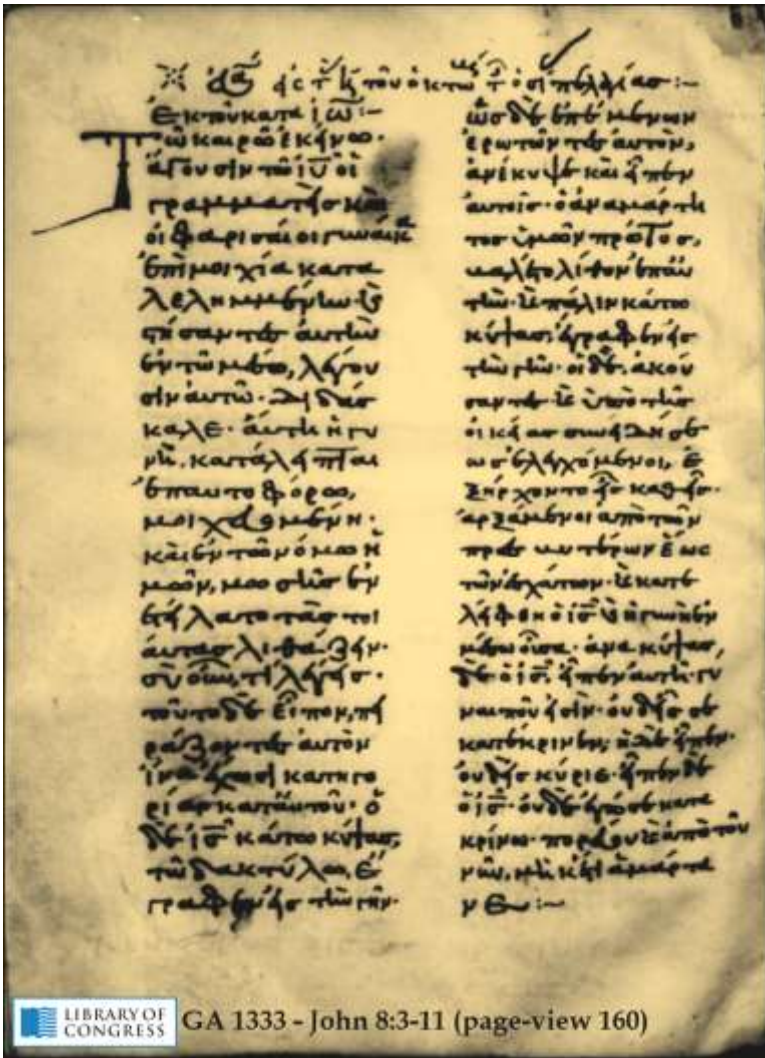 τοῦ ὀκτω τ ὁσί πελαγίας :–
Ἐκ τοῦ κατα ιω :–
Τῶ καιρῶ ἐκείνω·
ἄγουσιν τῶ ιυ οἱ
γραμματεῖς καὶ
οἱ φαρισαῖοι γυναῖκα
ἐπὶ μοιχία κατα
λελημμένην· ϗ
στήσαντες αὐτὴν
ἐν τῶ μέσω, λέγου
σιν αὐτῶ· Διδάσ
καλε· αὕτη ἡ γυ
νὴ, κατάλήπται
ἐπαυτοφόρω,
μοιχευομένη·
καὶ ἐν τῶ νόμω ἡ
μῶν, μωσῆς ἐν
ετείλατο τὰς τοι
αύτας λιθάζειν·
σὺ οὖν, τί λέγεις·
τοῦτο δὲ εἶπον, πει
ράζοντες αὐτὸν
ἵνα ἔχωσι κατηγο
ρίαν κατ αὐτοῦ· ὁ
δὲ ις κάτω κύψας,
τῶ δακτύλω, ἔ
γραφεν εἰς τὴν γῆν·
ὡς δὲ ἐπέμενων
ἐρωτῶντες αὐτὸν,
ἀνέκυψε καὶ εἶπεν
αὐτοῖς· ὁ ἀναμάρτη
τος ὑμῶν πρῶτος,
βαλέτο λίθον ἐπ αὐ
τὴν· ϗ πάλιν κάτω
κύψας, ἔγραφεν εἰς
τὴν γῆν· οἱ δὲ, ἀκού
σαντες ϗ ὑπὸ τῆς
οἰκείας συνειδήσε
ως ἐλεγχόμενοι, ἐ
ξήρχοντο εἷς καθεῖς·
ἀρξάμενοι ἀπὸ τῶν
πρεσβυτέρων ἕως
τῶν ἐσχάτων· ϗ κατε
λήφθη ὁ ις ϗ ἡ γυνὴ ἐν
μέσω οὖσα· ἀνακύψας,
δὲ ὁ ις, εἶπεν αὐτῆ· γύ
ναι ποῦ εἰσὶν· οὐδείς σε
κατέκρινεν; ἡ δὲ εἶπεν·
οὐδεὶς κύριε· εἶπεν δὲ
ὁ ις· οὐδὲ ἐγώ σε κατα
κρίνω· πορεύου ϗ ἀπὸ τοῦ
νῦν, μηκέτι ἁμάρτα
νε :~
LIBRARY OF
CONGRESS
GA 1333 - John 8:3-11 (page-view 160)